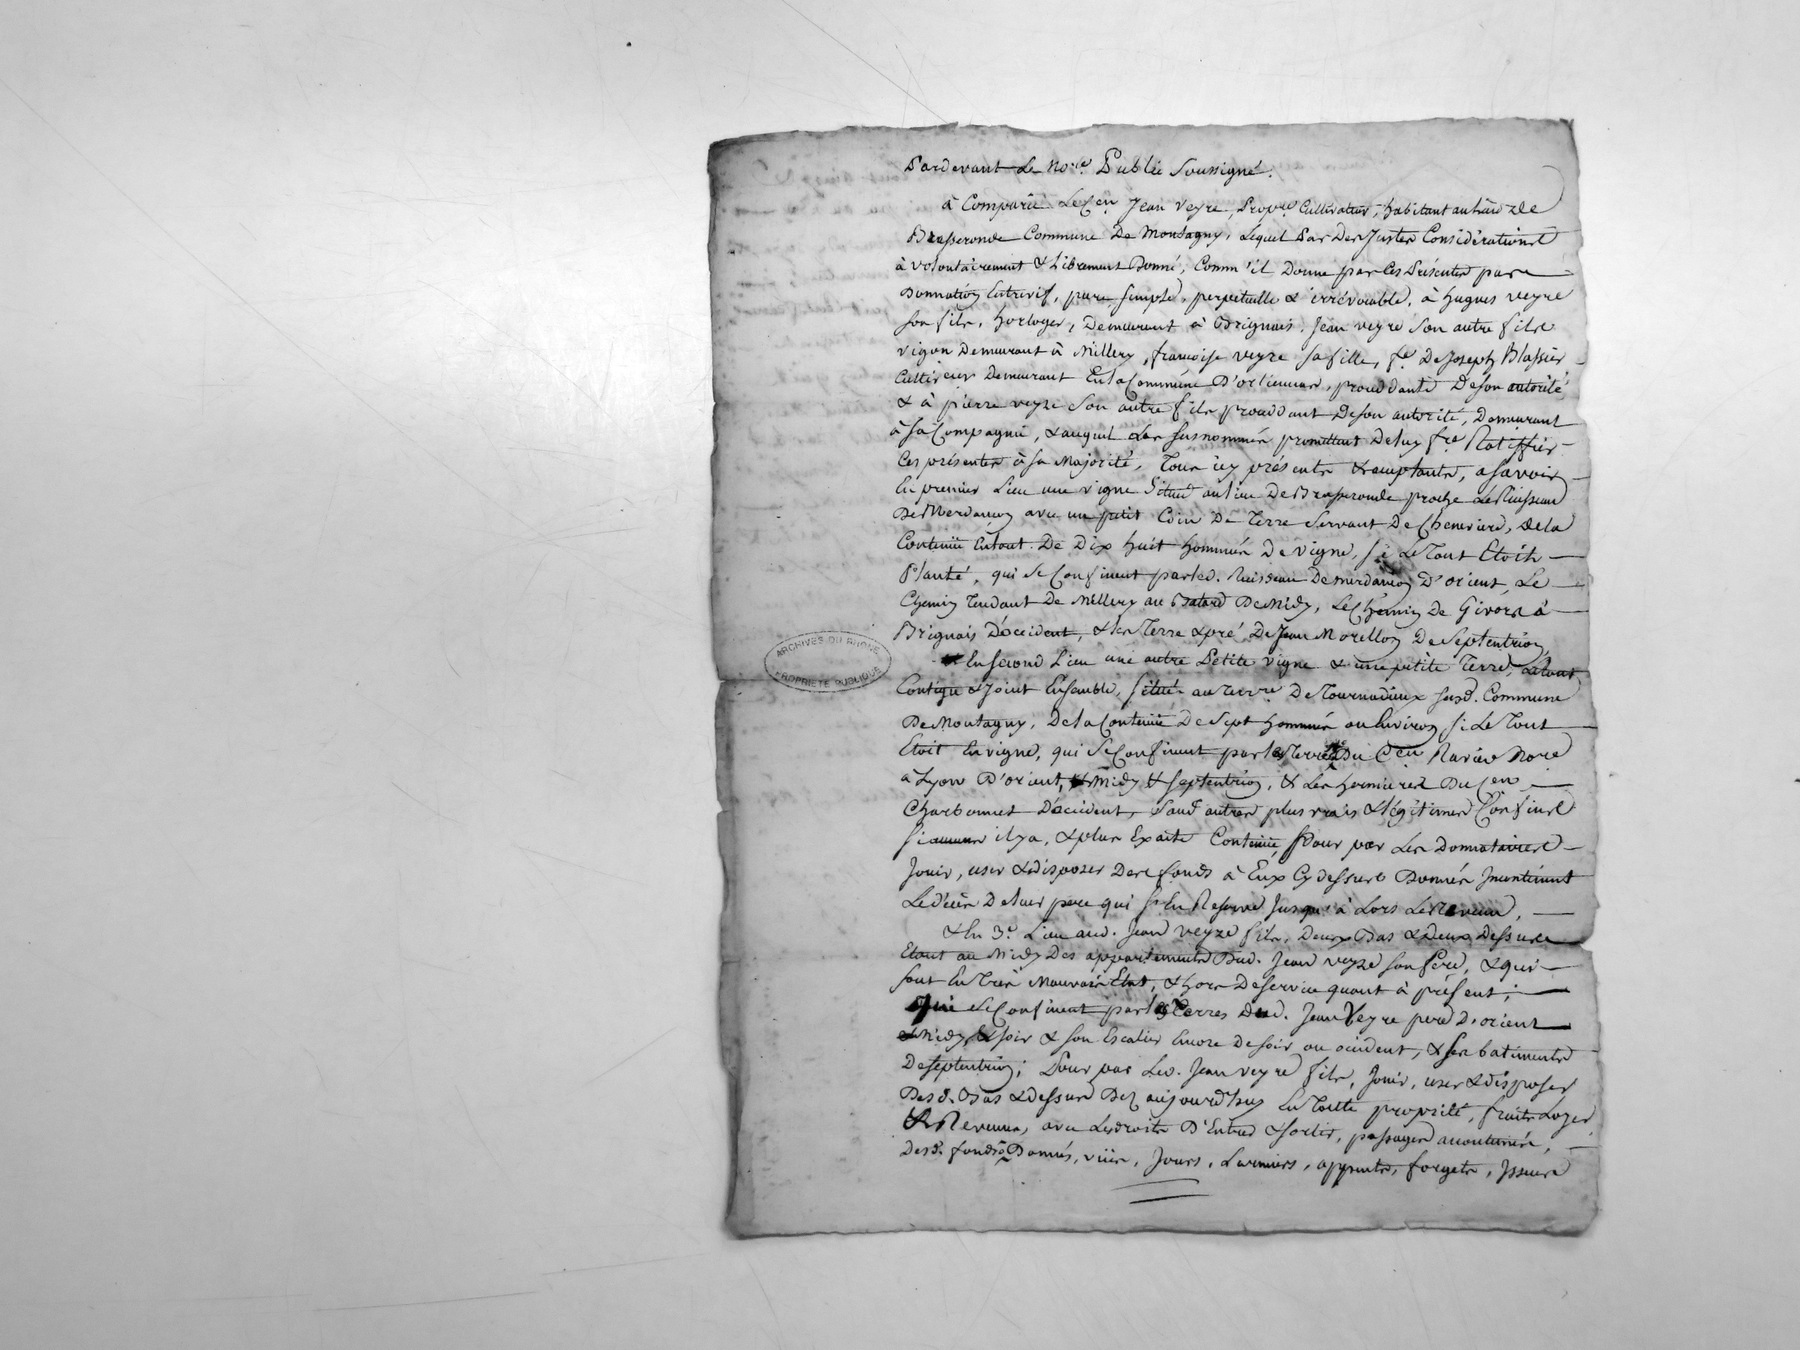 Pardevant Le No.re Public Soussigné.
à Comparu Le Cen Jean Veyre, Propre Cultivateur, habitant au lieu de
Brasseronde Commune De Montagny, Lequel Par Des Justes Considérations
à volontairement & Librement Donné, Comm'il Donne par Ces Présentes par
Donnation Entrevif, pure simple, perpetuelle & irrévocable, à hugues veyre
son fils, horloger, Demeurant à Brignais, Jean veyre son autre fils
vigon Demeurant à Millery, francoise veyre sa fille, fe. De Joseph Blassier
Cultiveur Demeurant En la Commune D'orlienas, procédante De son autorité
& à pierre veyre Son autre fils procédant De son autorité, Demeurant
à Sa Compagnie, & auquel Les susnommés promettent De luy fre Ratiffier
Ces présentes à Sa Majorité, Tous icy présents & acceptants, a savoir
En premier Lieu une vigne Située au lieu De Brasseronde proche Le Ruisseau
De Merdançon avec un petit Coin De Terre Servant De Cheneviere, De la
Contenue En tout De Dix huit hommées De vigne, si Le Tout Etoit
Planté, qui Se Confinent par led. Ruisseau De merdançon D'orient, Le
Chemin Tendant De Millery au Batard De Midy, Le Chemin De Givors à
Brignais D'occident, & les Terre & pré De Jean Morellon De Septentrion,
En second Lieu une autre Petite vigne & une petite Terre, Le tout
Contigu & Joint Ensemble, situé au Terre De Tournadieux susd. Commune
De Montagny, De la Contenue De Sept hommées ou Environ si Le Tout
Etoit En vigne, qui Se Confinent par les Terres Du Cen Ravier Nore
à Lyon D'orient, Midy & Septentrion, & Les hermieres Du Cen
Charbonnet D'occident, Sauf autres plus vrais & légitimes Confins
si aucuns il y a, & plus Exacte Contenue, Pour par Les Donnataires
Jouir, user & disposer Des fonds à Eux Cy dessus Donnés Incontinent
Le décès De leur pere qui s'En Reserve Jusqu'à Lors Les Revenus,
& En 3e. Lieu aud. Jean veyre fils, Deux Bas & Deux Dessus
Etant au Midy Des appartements Dud. Jean veyre son Pere, & qui
sont En Très Mauvais Etat, & hors De service quant à présent;
qui Se Confinent par les Terres Dud. Jean Veyre pere D'orient
& Midy, & soir & son Escalier Encore De soir ou occident, & ses batiments
De Septentrion; Pour par Led. Jean veyre fils, Jouir, user & disposer
Desd. Bas & dessus Dez aujourd'huy En Toutte propriété, fruits Loyer
& Revenus, avec Les droits D'Entrée & sortie, passages accoutumés,
Desd. fonds Donnés, vües, Jours, Larmiers, appents, forgets, Issues
ARCHIVES DU RHONE
PROPRIETE PUBLIQUE